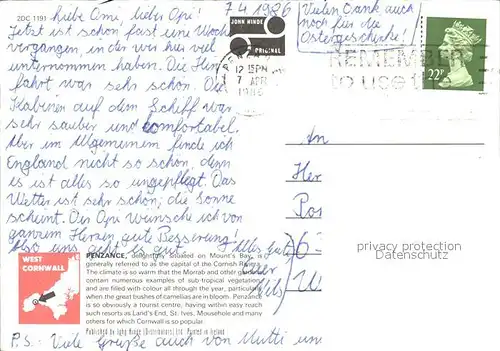 2DC 1191
7.4.1986
Liebe Omi, lieber Opi!
Jetzt ist schon fast eine Woche
vergangen, in der wir hier viel
unternommen haben. Die Hin-
fahrt war sehr schön. Die
Kabinen auf dem Schiff war
sehr sauber und comfortabel.
Aber im Allgemeinem finde ich
England nicht so schön, denn
es ist alles so ungepflegt. Das
Wetter ist sehr schön; die Sonne
scheint. Der Opi wünsche ich von
ganzem Herzen gute Besserung!
Also uns geht es gut.
Alles Gute
P.S.: Viele Grüße auch von Mutti un
Vielen Dank auch
noch für die
Ostergeschenke!
JOHN HINDE
ORIGINAL
12 15PM
7 APR
1986
REMEMBER
to use t
22P
An
Her
Pos
WEST
CORNWALL
PENZANCE, delightfully situated on Mount's Bay, is
generally referred to as the capital of the Cornish Riviera.
The climate is so warm that the Morrab and other gardens
contain numerous examples of sub-tropical vegetation
and are filled with colour all through the year, particularly
when the great bushes of camellias are in bloom. Penzance
is so obviously a tourist centre, having within easy reach
such resorts as Land's End, St. Ives, Mousehole and many
others for which Cornwall is so popular.
Published by John Hinde (Distributors) Ltd. Printed in Ireland
privacy protection
Datenschutz